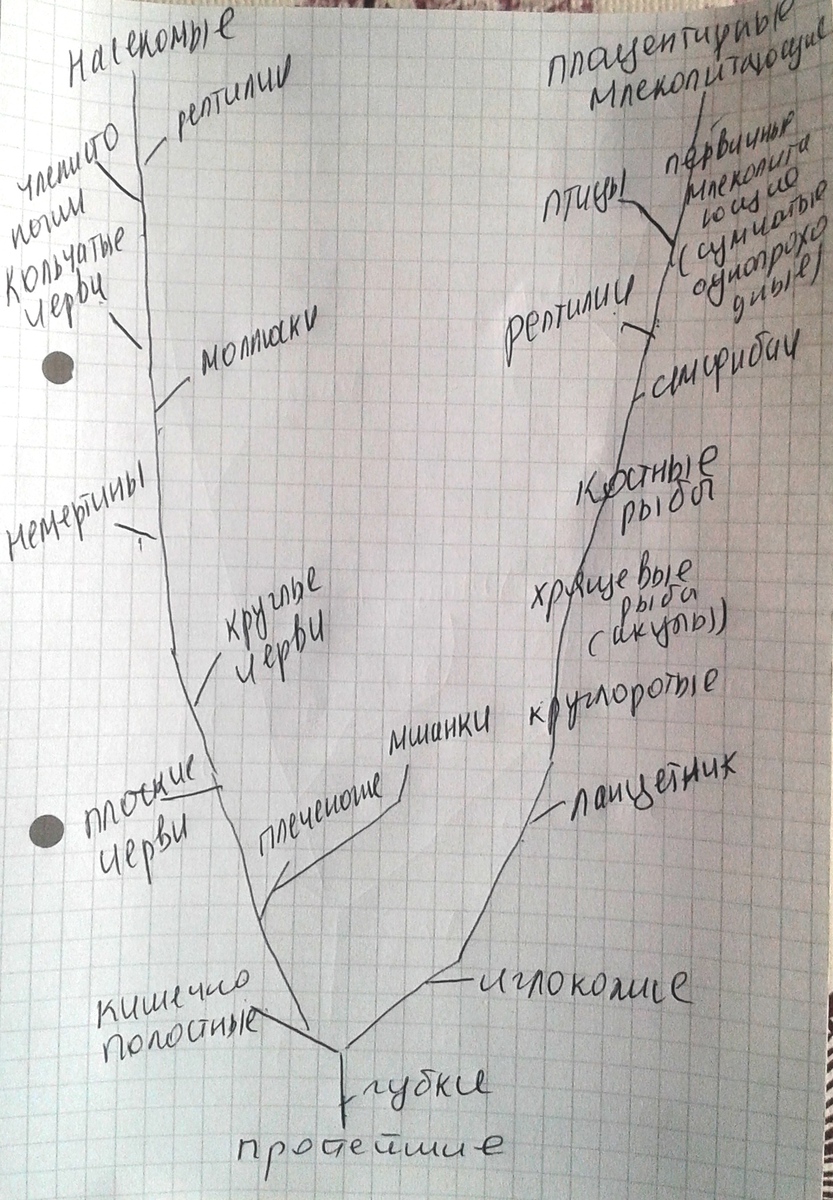 насекомые
рептилии
членисто
ногии
Кольчатые
черви
моллюски
немертины
круглые
черви
плоские
черви
плеченогие
мшанки
кишечно
полостные
губки
простейшие
плацентарные
млекопитающие
птицы
первичные
млекопита
ющие
(сумчатые
однопрохо
дные)
рептилии
амфибии
Костные
рыбы
хрящевые
рыбы
(акулы)
круглоротые
ланцетник
иглокожие